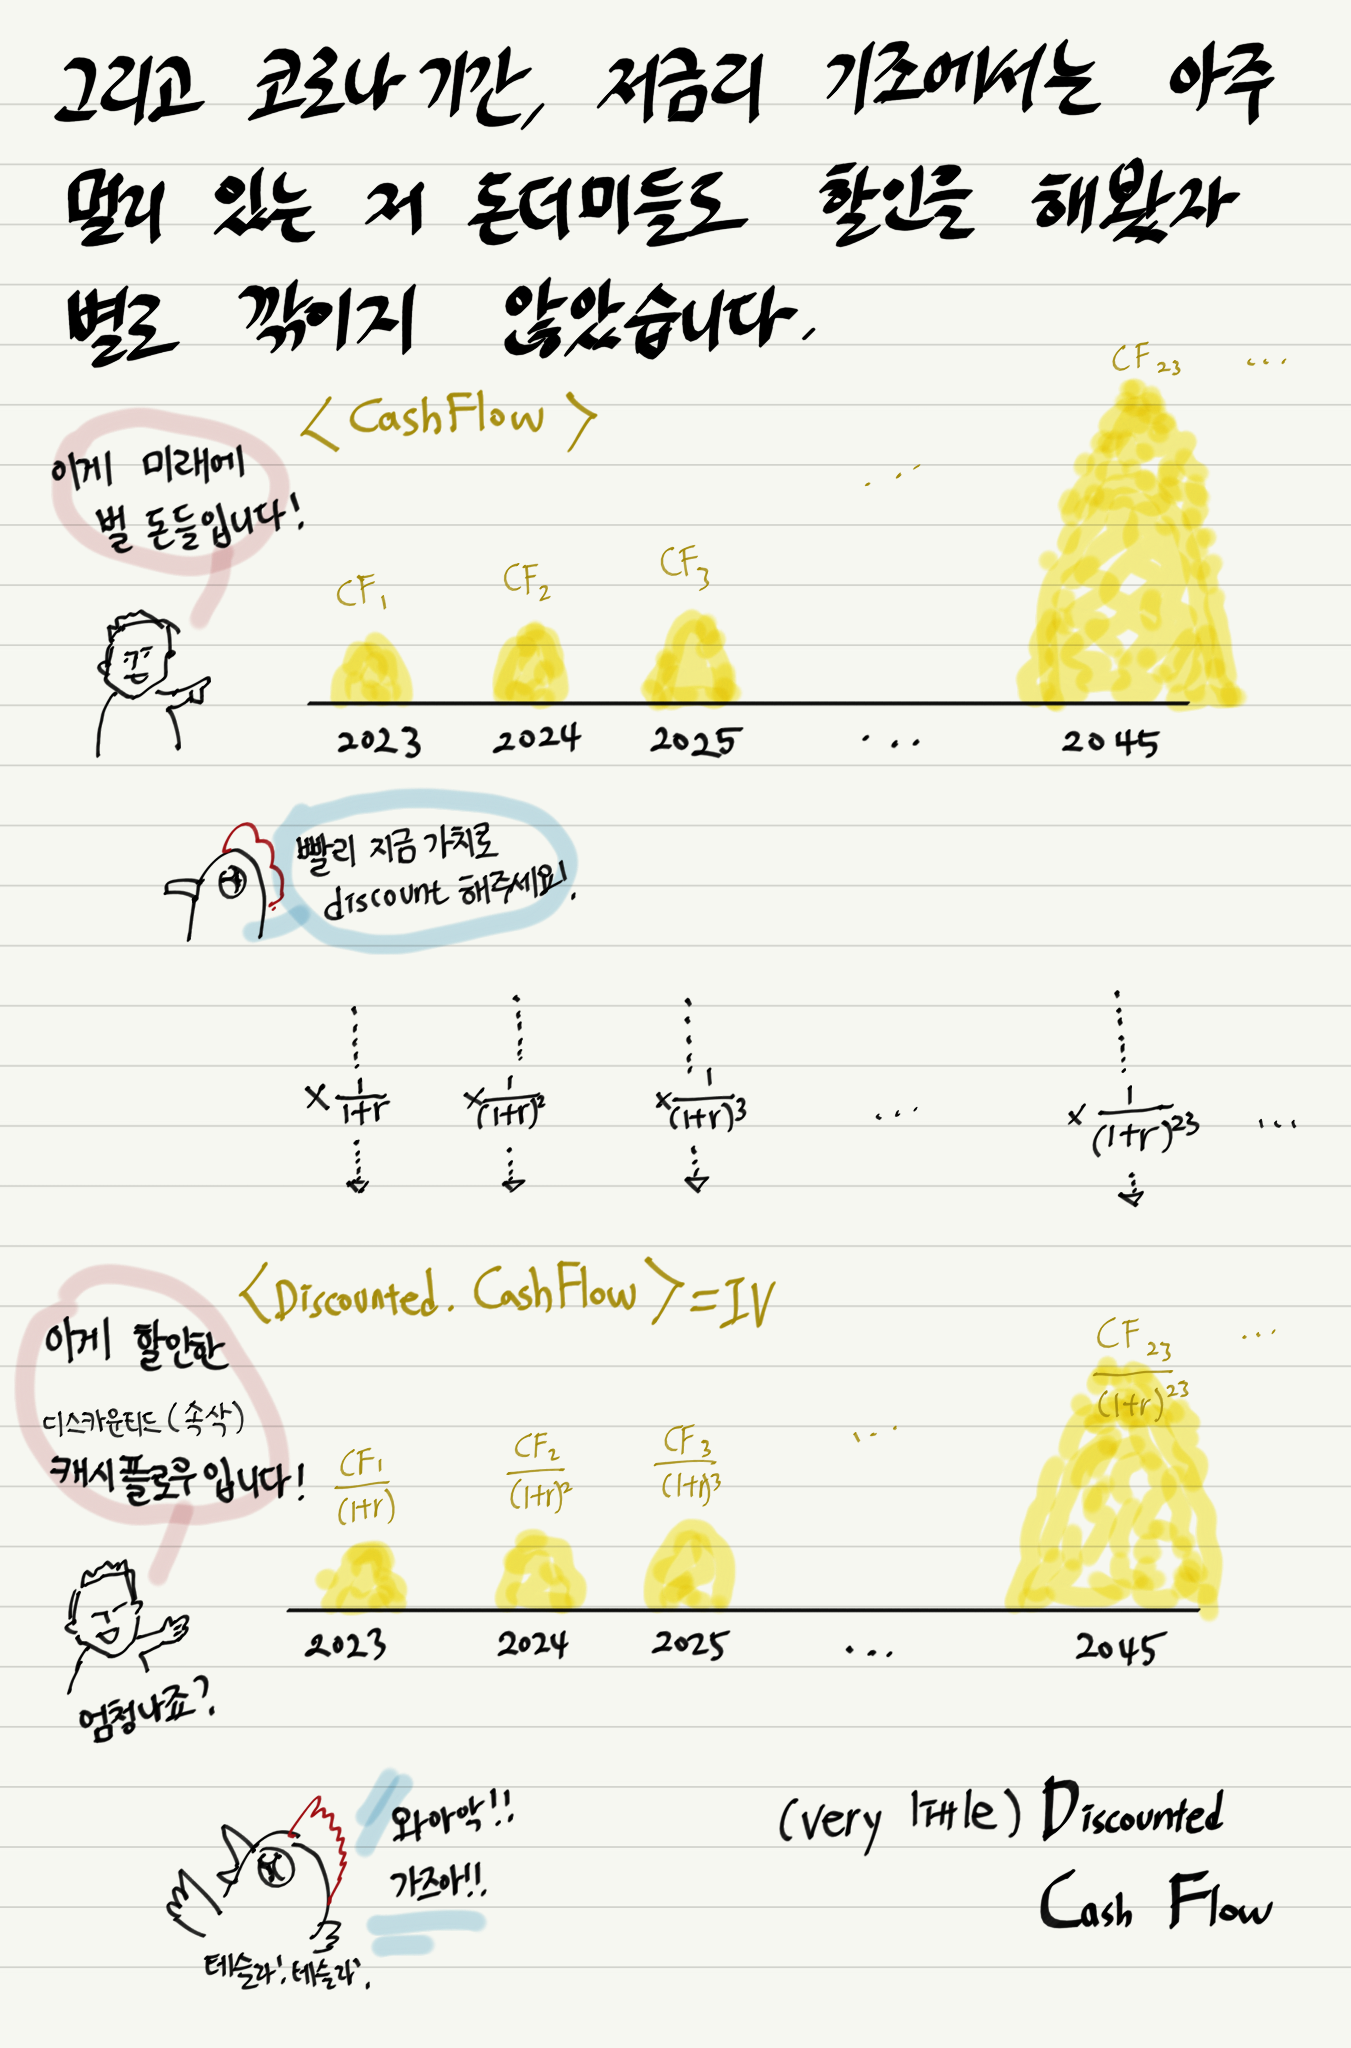 그리고 코로나 기간, 저금리 기조에서는 아주
멀리 있는 저 돈더미들도 할인을 해봤자
별로 깎이지 않았습니다.
<CashFlow>
이게 미래에
벌 돈들입니다!
CF₁
CF₂
CF₃
...
CF₂₃ ...
2023 2024 2025 ... 2045
빨리 지금 가치로
discount 해주세요!.
× 1/(1+r)
× 1/(1+r)²
× 1/(1+r)³
...
× 1/(1+r)²³ ...
<Discounted. CashFlow> = IV
이게 할인한
디스카운티드 (속삭)
캐시플로우입니다!
CF₁/(1+r)
CF₂/(1+r)²
CF₃/(1+r)³
...
CF₂₃/(1+r)²³ ...
2023 2024 2025 ... 2045
엄청나죠?
와아악!!
가즈아!!
테슬라! 테슬라!
(very little) Discounted
Cash Flow